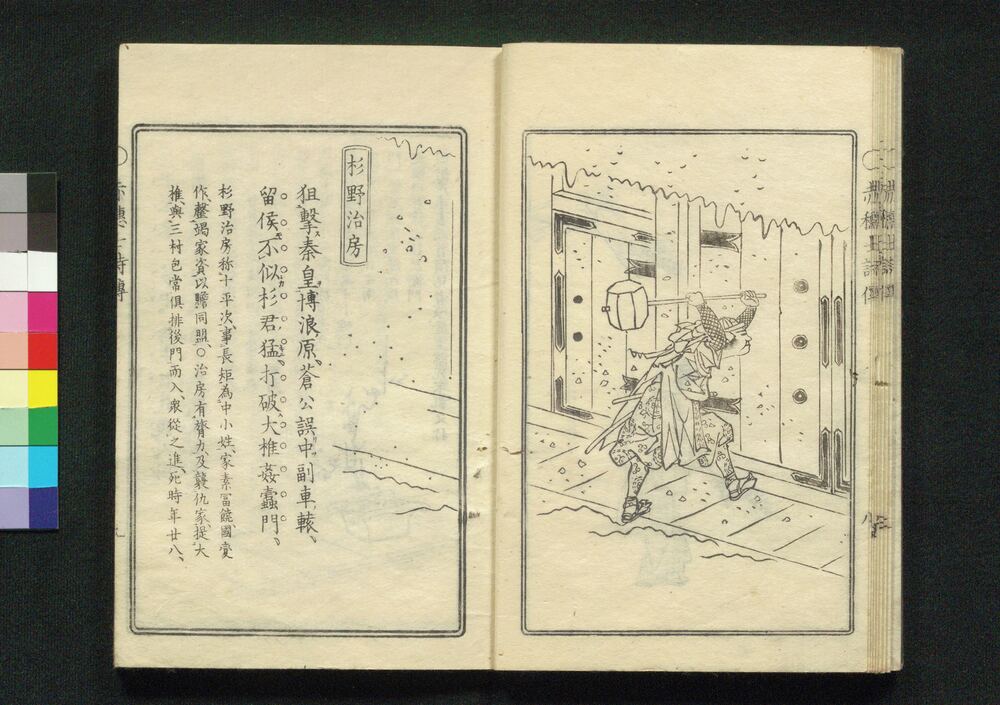 杉野治房
狙撃秦皇博浪原、蒼公誤中副車轅、
留侯不似杉君猛、打破大椎姦蠹門、
杉野治房称十平次、事長矩為中小姓家素冨饒國変
作罄竭家資以贍同盟〇治房有膂力及襲仇家提大
椎與三村包常俱排後門而入、衆從之進、死時年廿八、